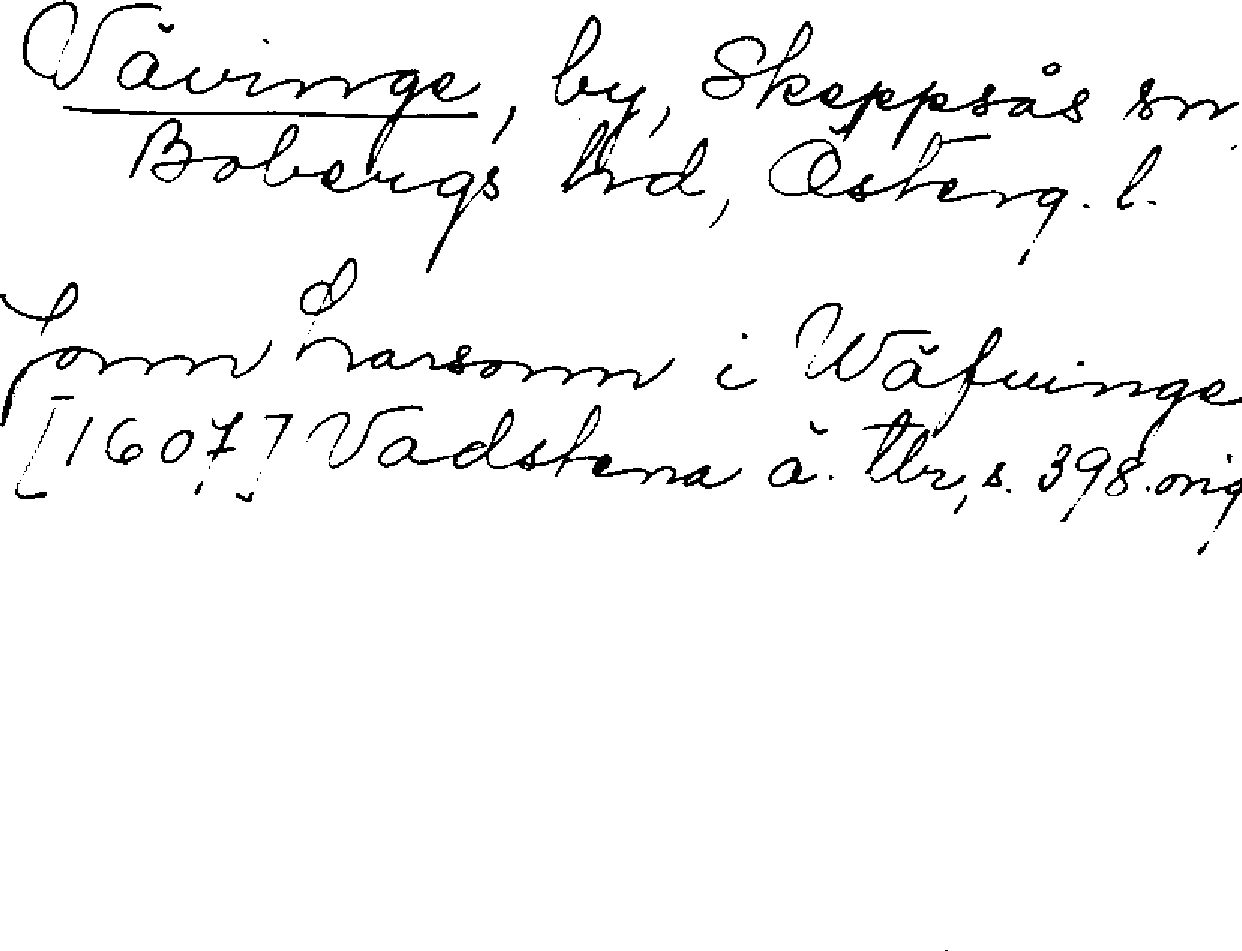 Vävinge, by, Skeppsås sn
Bobergs hrd, Österg. l.
Jonn Larsonn i Wäfwinge
[1607] Vadstena ä. tbr, s. 398. orig